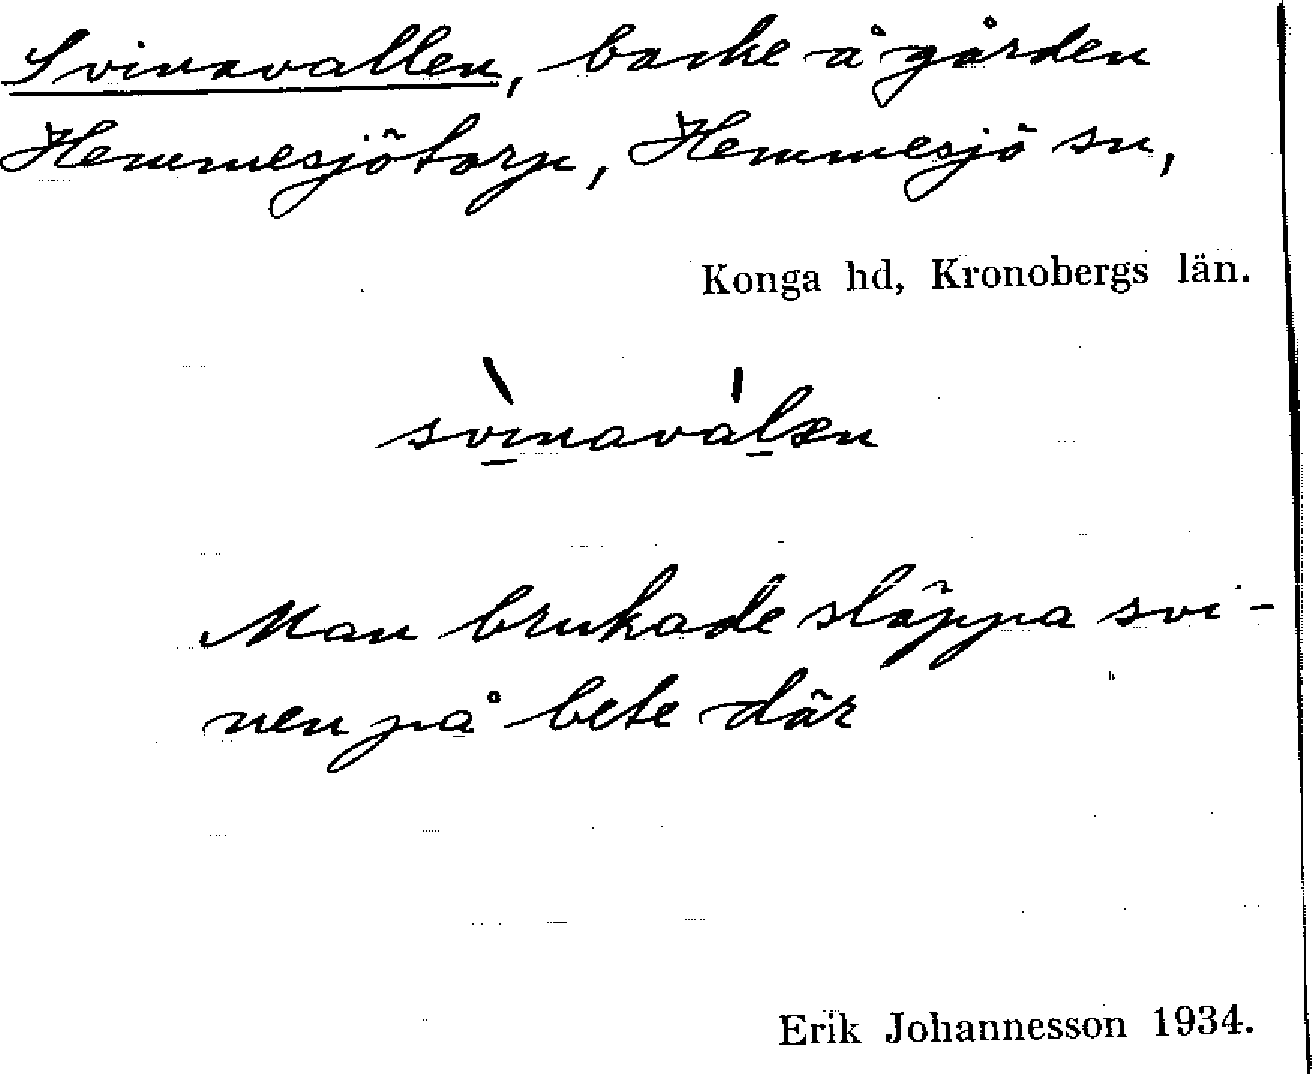 Svinavallen, backe å gården
Hemmesjötorp, Hemmesjö sn,
Konga hd, Kronobergs län.
svìnaválæn
Man brukade släppa svi-
nen på bete där
Erik Johannesson 1934.